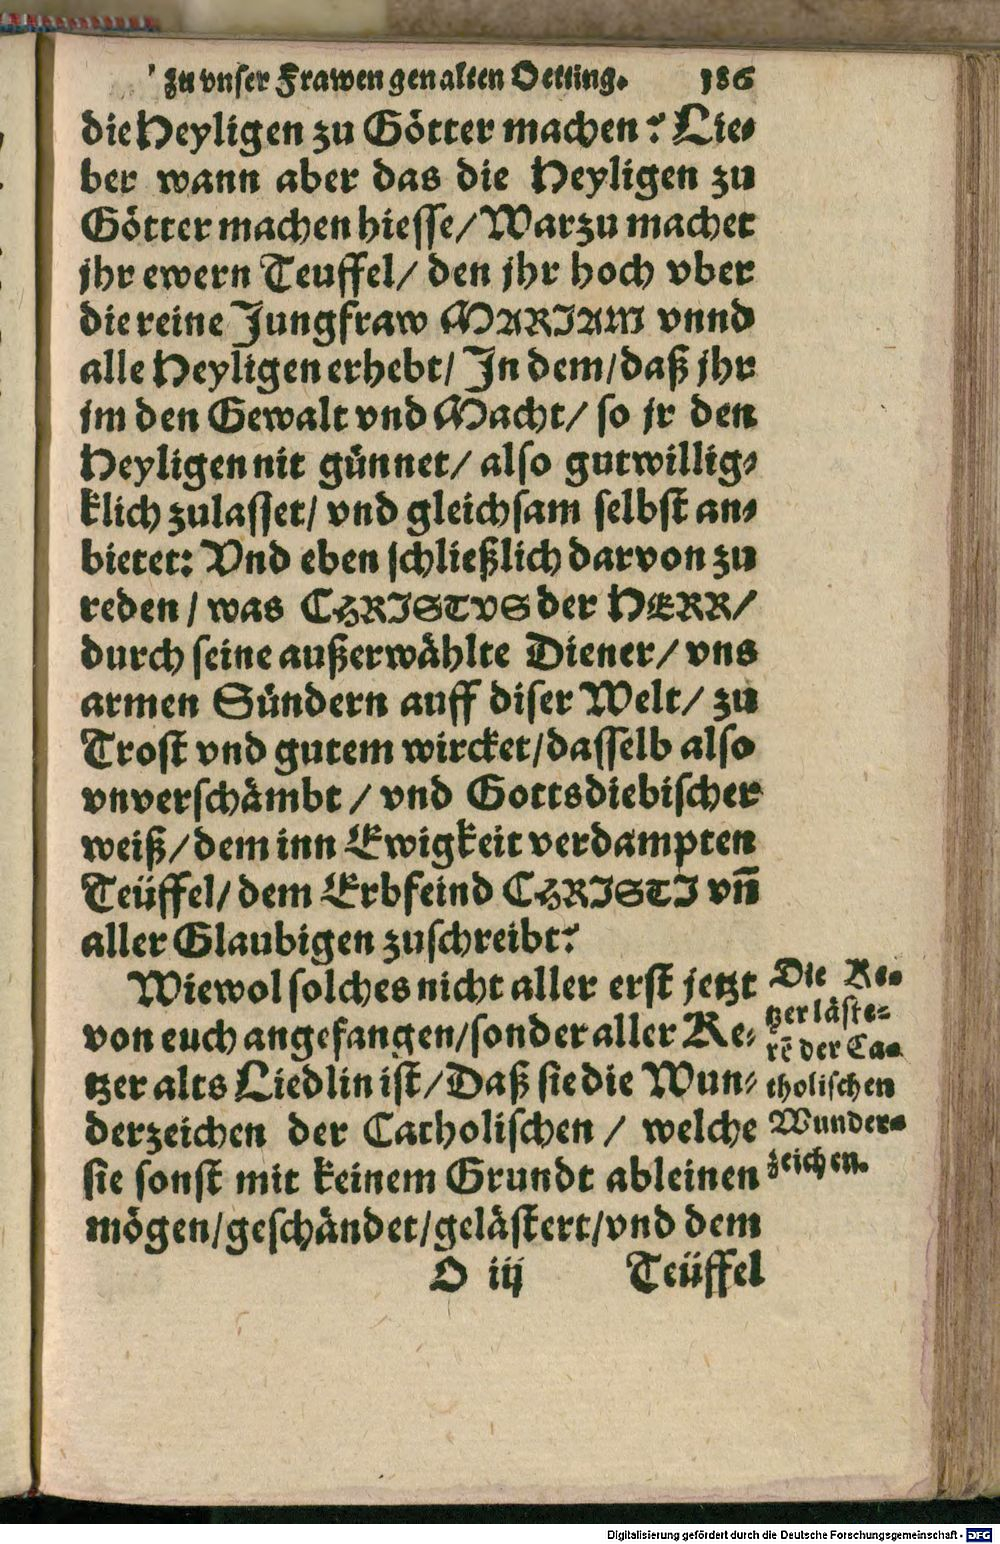 zu vnser Frawen gen alten Oetting. 186
die Heyligen zu Götter machen? Lie-
ber wann aber das die Heyligen zu
Götter machen hiesse/ Warzu machet
jhr ewern Teuffel/ den jhr hoch vber
die reine Jungfraw MARIAM vnnd
alle Heyligen erhebt/ In dem/ daß jhr
jm den Gewalt vnd Macht/ so jr den
Heyligen nit günnet/ also gutwillig-
klich zulasset/ vnd gleichsam selbst an-
bietet: Vnd eben schließlich darvon zu
reden/ was CHRISTVS der HERR/
durch seine außerwählte Diener/ vns
armen Sündern auff diser Welt/ zu
Trost vnd gutem wircket/ dasselb also
vnverschämbt/ vnd Gottsdiebischer
weiß/ dem inn Ewigkeit verdampten
Teüffel/ dem Erbfeind CHRISTI vñ
aller Glaubigen zuschreibt?
Wiewol solches nicht aller erst jetzt
von euch angefangen/ sonder aller Ke-
tzer alts Liedlin ist/ Daß sie die Wun-
derzeichen der Catholischen/ welche
sie sonst mit keinem Grundt ableinen
mögen/ geschändet/ gelästert/ vnd dem
O iij Teüffel
Die Ke-
tzer läste-
rẽ der Ca-
tholischen
Wunder-
zeichen.
Digitalisierung gefördert durch die Deutsche Forschungsgemeinschaft - DFG